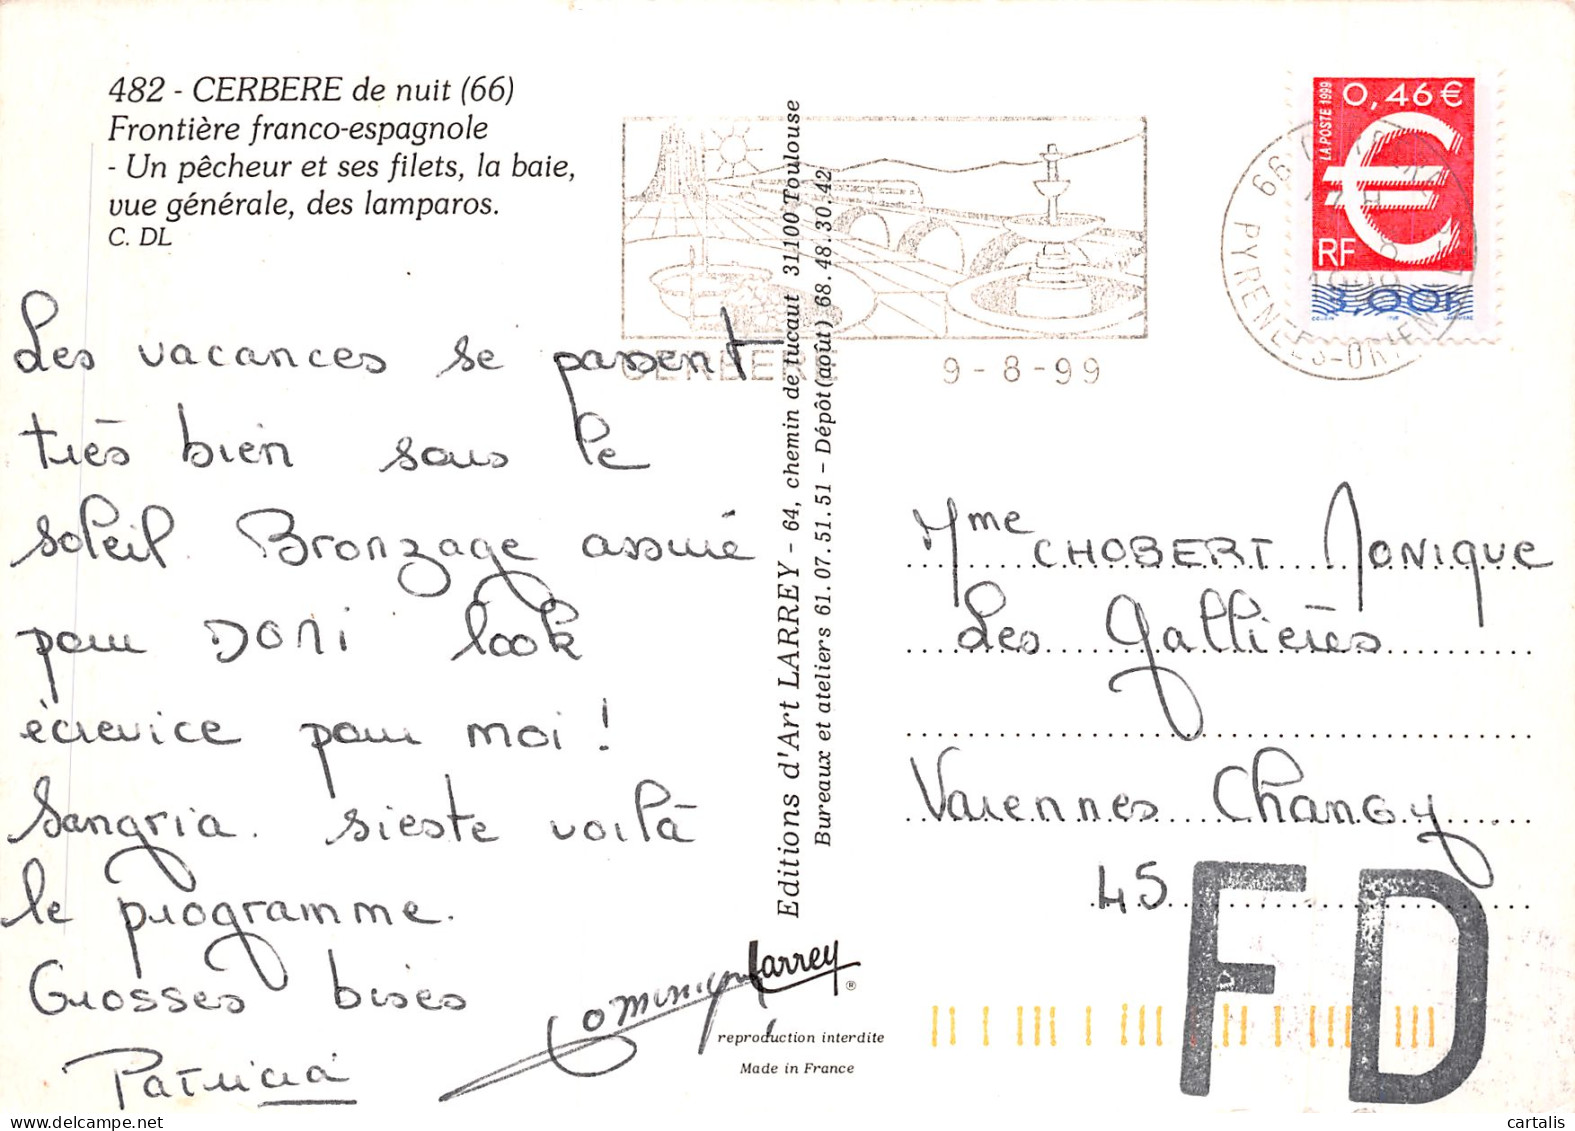 482 - CERBERE de nuit (66)
Frontière franco-espagnole
- Un pêcheur et ses filets, la baie,
vue générale, des lamparos.
C. DL
Les vacances se passent
très bien sous le
soleil. Bronzage assuré
pour DONI look
écrevice pour moi !
Sangria. sieste voilà
le programme.
Grosses bises
Patricia
Dominique
Editions d'Art LARREY - 64, chemin de tucaut 31100 Toulouse
Bureaux et ateliers 61.07.51.51 - Dépôt (août) 68.48.30.42
Larrey
®
reproduction interdite
Made in France
CERBERE
9-8-99
66
PYRENEES-ORIENTALES
LA POSTE 1999
0,46 €
€
RF
3,00F
Mme CHOBERT Monique
Les Gallières
Varennes Changy
45
FD
cartalis